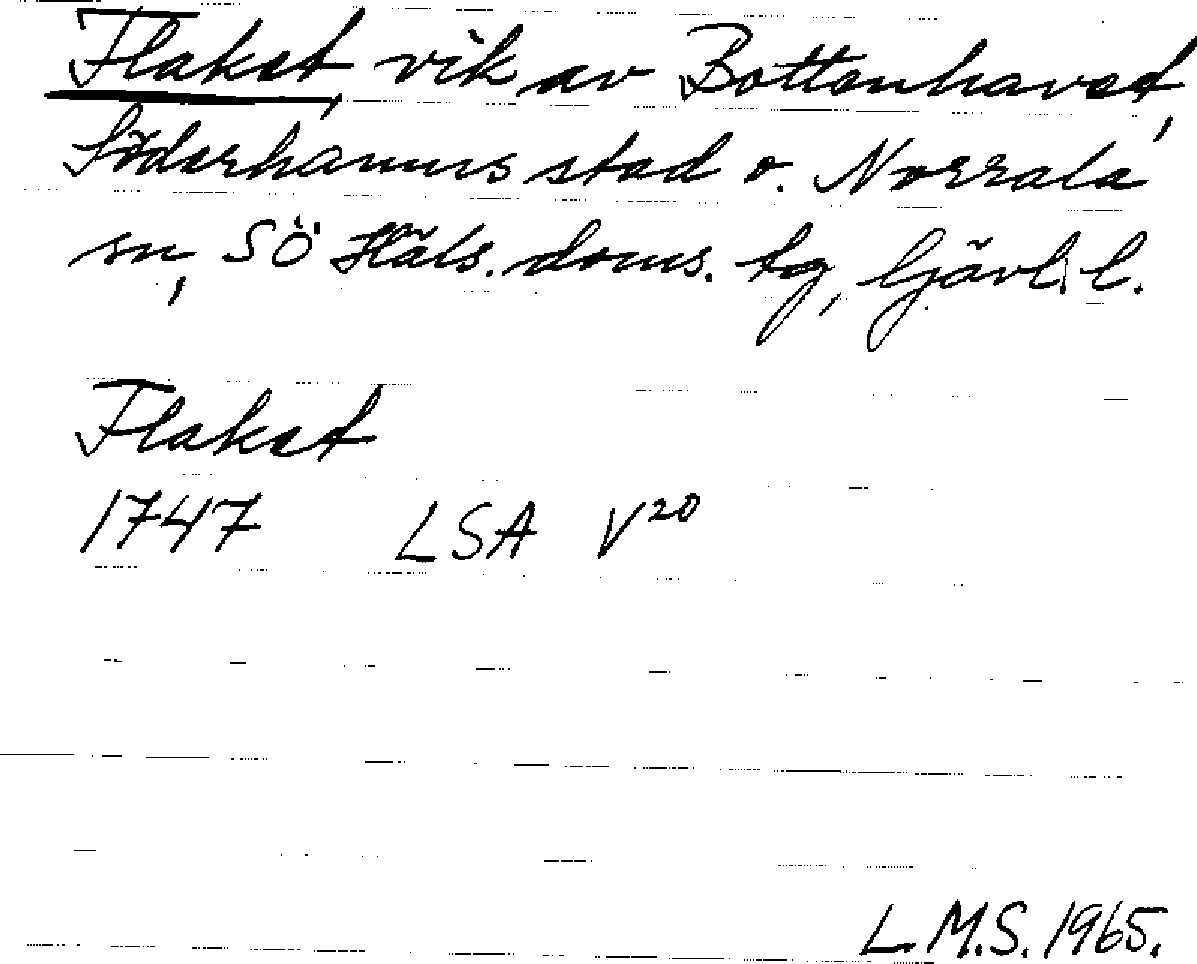 Flaket, vik av Bottenhavet,
Söderhamns stad o. Norrala
sn, SÖ Häls. doms. tg, Gävl. l.
Flaket
1747 LSA V20
L.M.S. 1965.